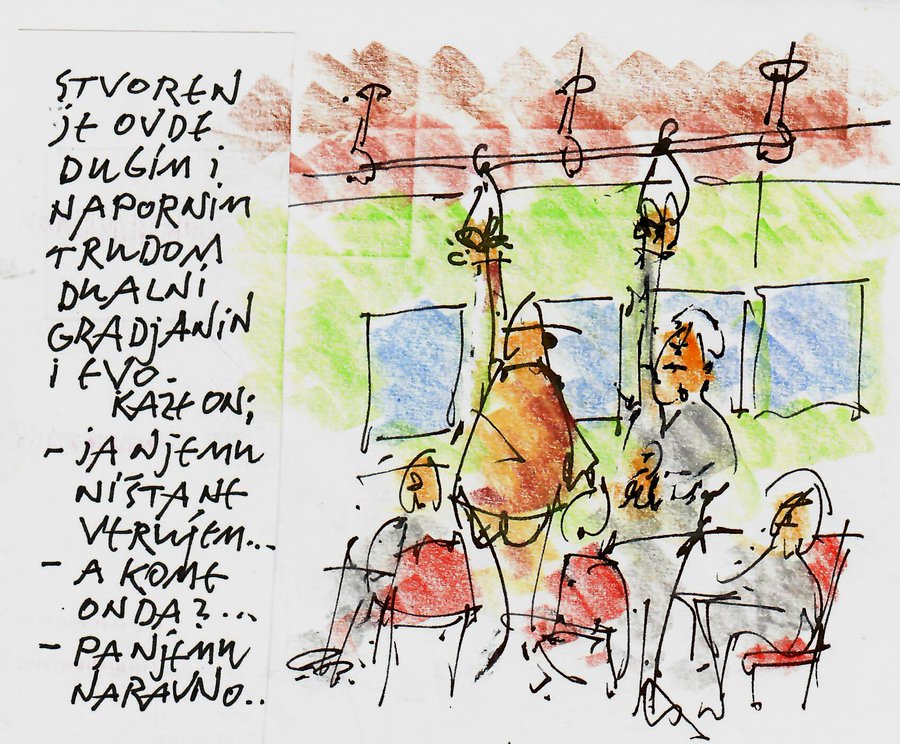 STVOREN
JE OVDE
DUGIM I
NAPORNIM
TRUDOM
DUALNI
GRADJANIN
I EVO.
KAŽE ON;
- JA NJEMU
NIŠTA NE
VERUJEM...
- A KOME
ONDA?...
- PA NJEMU
NARAVNO..